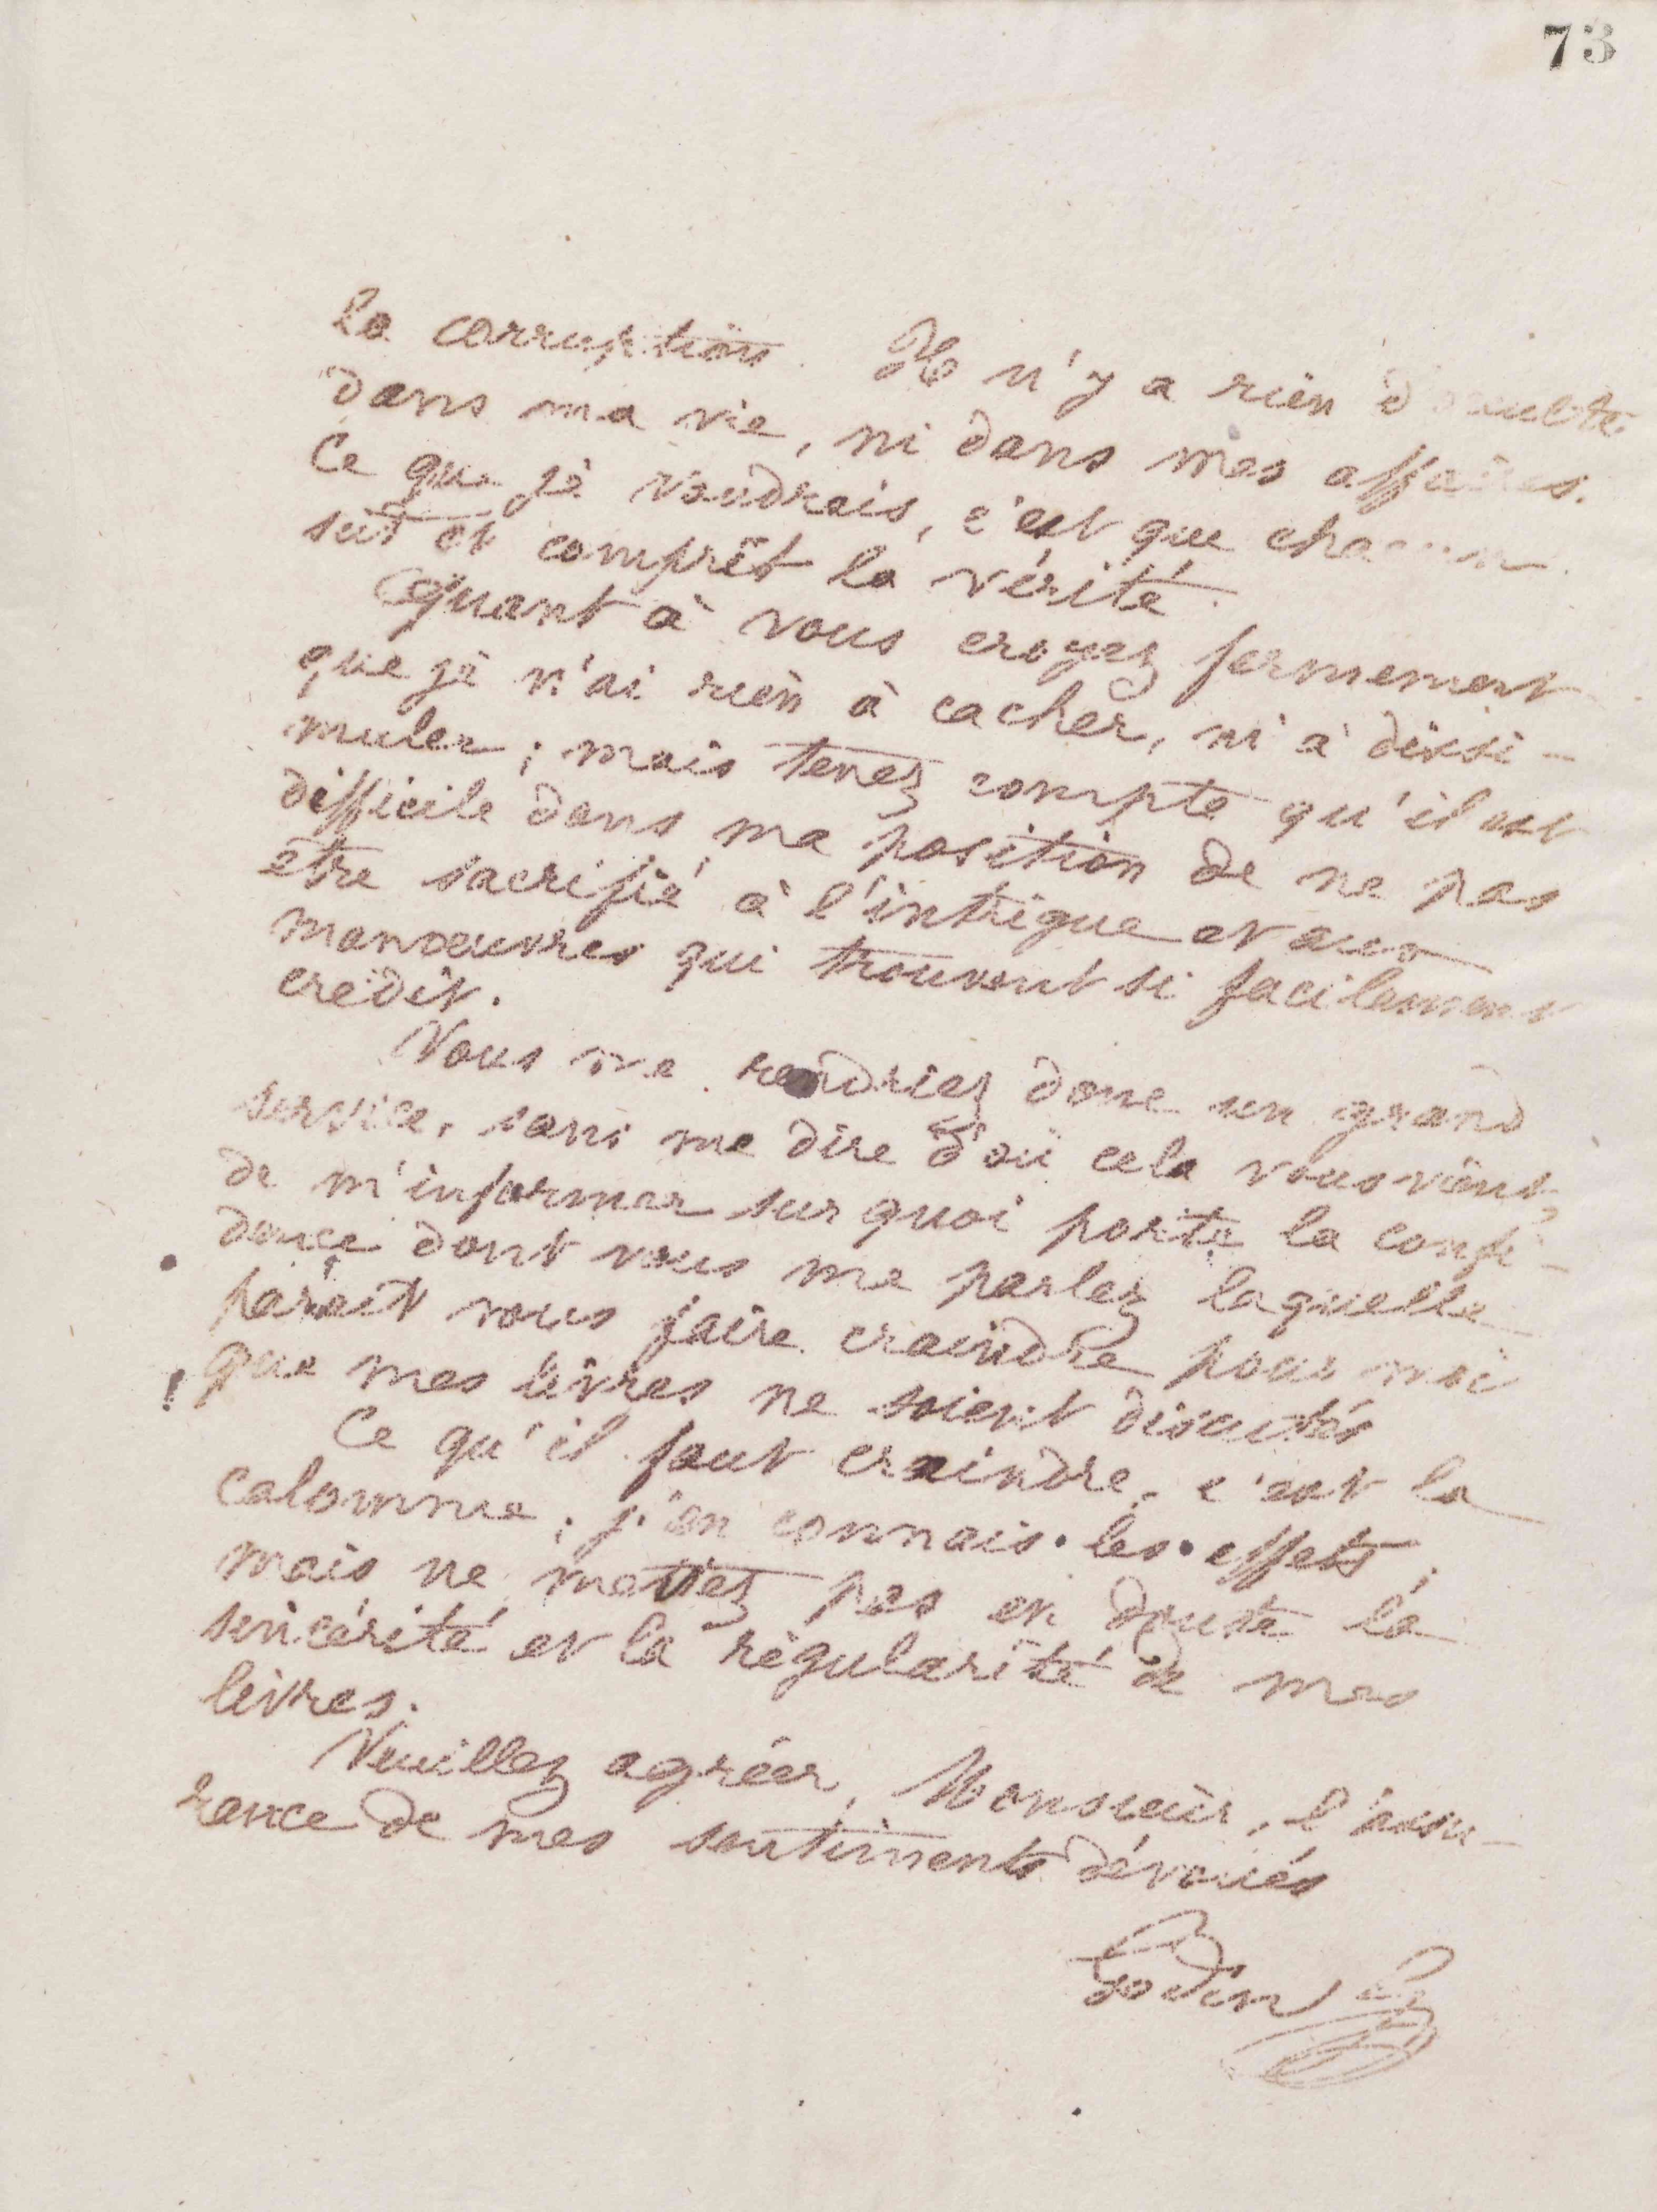 73
la corruption. Il n'y a rien d'occulte
dans ma vie, ni dans mes affaires.
Ce que je voudrais, c'est que chacun
sût et comprît la vérité.
Quant à vous croyez fermement
que je n'ai rien à cacher, ni à dissi-
muler ; mais tenez compte qu'il est
difficile dans ma position de ne pas
être sacrifié à l'intrigue et aux
manœuvres qui trouvent si facilement
crédit.
Vous me rendriez donc un grand
service, sans me dire d'où cela vous vient,
de m'informer sur quoi porte la confi-
dence dont vous me parlez laquelle
paraît vous faire craindre pour moi
que mes livres ne soient discutés
Ce qu'il faut craindre, c'est la
calomnie ; j'en connais les effets ;
mais ne mettez pas en doute la
sincérité et la régularité de mes
livres.
Veuillez agréer, Monsieur, l'assu-
rance de mes sentiments dévoués
Godin